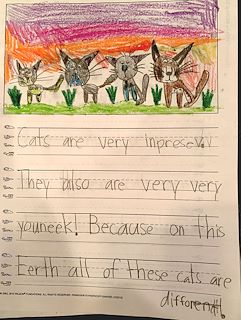 Cats are very inpresevv
They also are very very
youneek! Because on this
Eerth all of these cats are
different